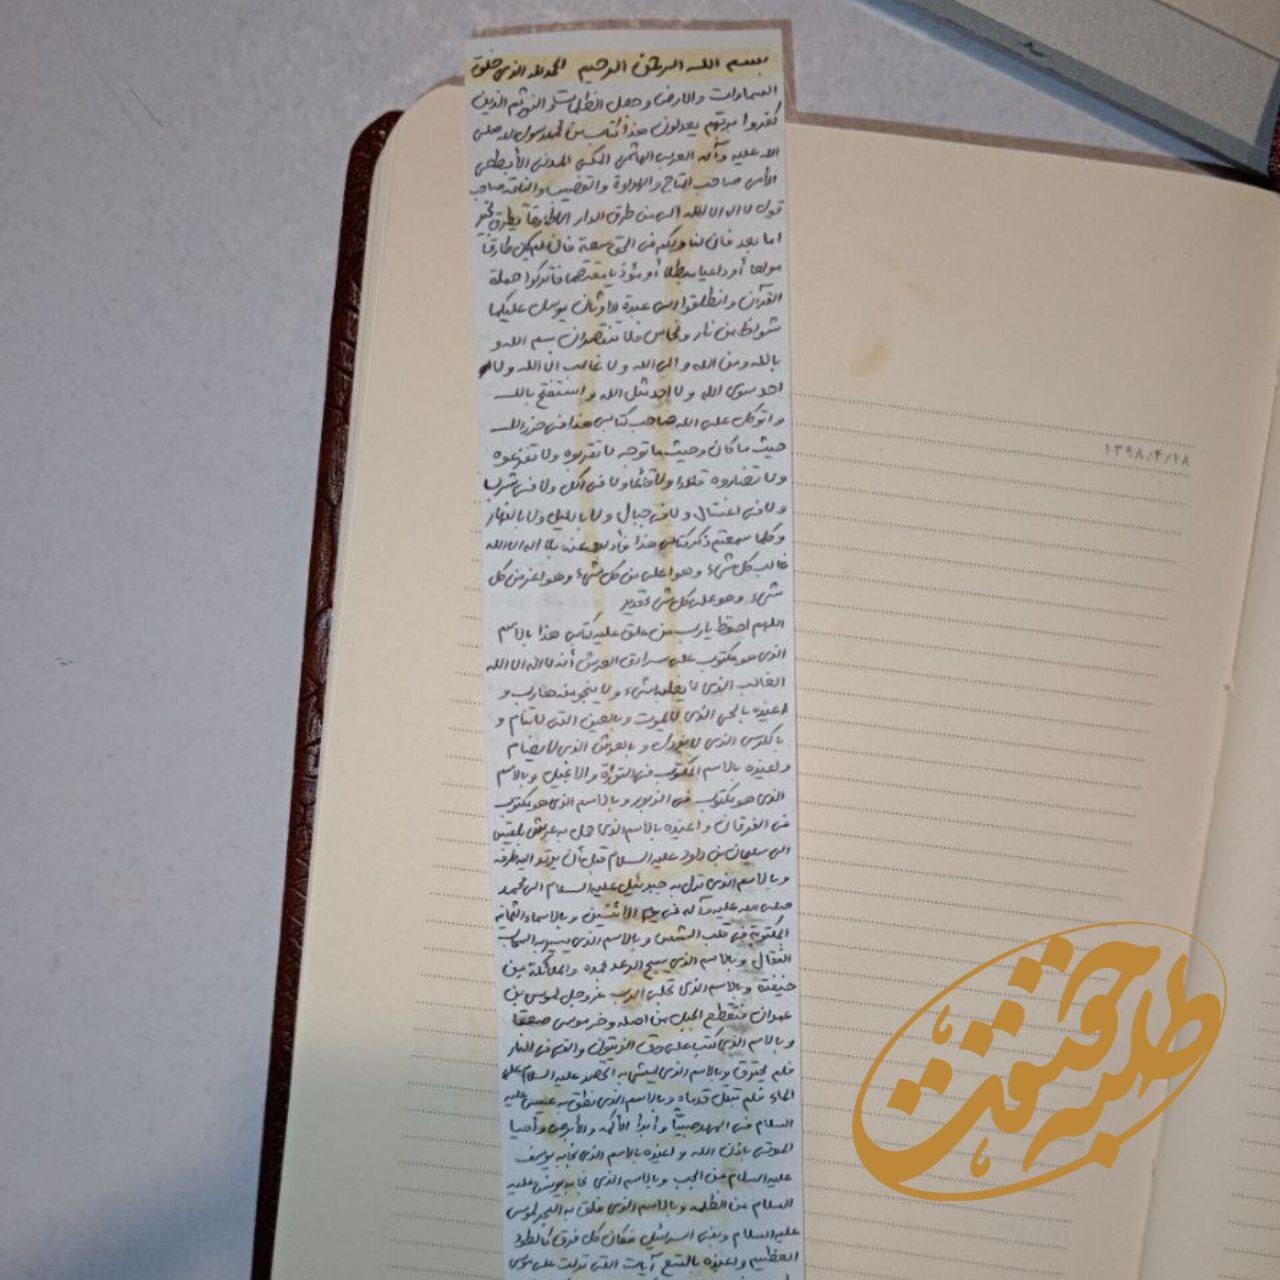 بسم الله الرحمن الرحیم الحمدلله الذی خلق
السماوات والارض و جعل الظلمات و النور ثم الذین
کفروا بربهم یعدلون هذا کتاب من محمد رسول الله صلی
الله علیه و آله العربی الهاشمی المکی المدنی الأبطحی
الأمی صاحب التاج و الهراوة و القضیب و الناقة صاحب
قول لا اله الا الله الی من طرق الدار الا طارقاً یطرق بخیر
اما بعد فان لنا و لکم فی الحق سعة فان لم یکن طارقاً
مولعا أو داعیا مبطلا أو مؤذیا مقتحما فاترکوا حملة
القرآن و انطلقوا الی عبدة الاوثان یرسل علیکما
شواظ من نار و نحاس فلا تنتصران بسم الله و
بالله و من الله و الی الله و لا غالب الا الله و لا
احد سوی الله و لا احد مثل الله و استفتح بالله
و اتوکل علی الله صاحب کتابی هذا فی حرز الله
حیث ما کان و حیث ما توجه لا تقربوه و لا تفزعوه
و لا تضاروه قاعدا و لا قائما و لا فی اکل و لا فی شرب
و لا فی اغتسال و لا فی جبال و لا باللیل و لا بالنهار
و کلما سمعتم ذکر کتابی هذا فأدبروا عنه بلا اله الا الله
غالب کل شیء و هو اعلی من کل شیء و هو اعز من کل
شیء و هو علی کل شیء قدیر
اللهم احفظ یا رب من علق علیه کتابی هذا بالاسم
الذی هو مکتوب علی سرادق العرش أنه لا اله الا الله
الغالب الذی لا یغلبه شیء و لا ینجو منه هارب و
اعیذه بالحی الذی لا یموت و بالعین التی لا تنام و
بالکرسی الذی لا یزول و بالعرش الذی لا یضام
و اعیذه بالاسم المکتوب فی التوراة و الانجیل و بالاسم
الذی هو مکتوب فی الزبور و بالاسم الذی هو مکتوب
فی الفرقان و اعیذه بالاسم الذی حمل به عرش بلقیس
الی سلیمان بن داود علیه السلام قبل أن یرتد الیه طرفه
و بالاسم الذی نزل به جبرئیل علیه السلام الی محمد
صلی الله علیه و آله فی یوم الاثنین و بالاسماء الثمانیة
المکتوبة فی قلب الشمس و بالاسم الذی یسیر به السحاب
الثقال و بالاسم الذی یسبح الرعد بحمده و الملائکة من
خیفته و بالاسم الذی تجلی الرب عز و جل لموسی بن
عمران فتقطع الجبل من اصله و خر موسی صعقا
و بالاسم الذی کتب علی ورق الزیتون و القی فی النار
فلم یحترق و بالاسم الذی یمشی به الخضر علیه السلام علی
الماء فلم تبتل قدماه و بالاسم الذی نطق به عیسی علیه
السلام فی المهد صبیّاً و أبرأ الأکمه و الأبرص و أحیا
الموتی باذن الله و اعیذه بالاسم الذی نجا به یوسف
علیه السلام من الجب و بالاسم الذی نجا به یونس علیه
السلام من الظلمة و بالاسم الذی فلق به البحر لموسی
علیه السلام و بنی اسرائیل فکان کل فرق کالطود
العظیم و اعیذه بالتسع آیات التی نزلت علی موسی
۱۳۹۸/۴/۱۸
طلبه حقیقت